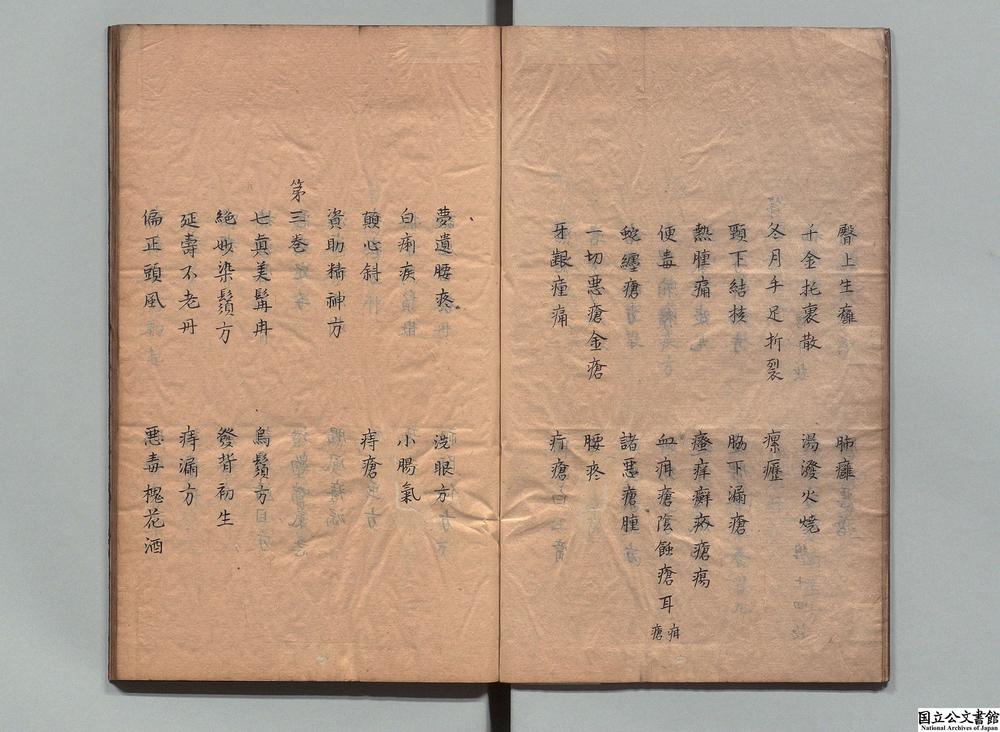 臀上生癰　肺癰
千金托裏散　湯潑火燒
冬月手足折裂　瘰癧
頸下結核　脇下漏瘡
熱腫痛　瘙痒癬疥瘡瘍
便毒　血疳瘡陰蝕瘡耳疳瘡
蛇纏瘡　諸悪瘡腫
一切悪瘡金瘡　腰疼
牙齦瘇痛　疔瘡
夢遺腰疼　洗眼方
白痢疾　小腸氣
顛心斜　痔瘡
資助精神方
第三巻
七眞美髯丹　烏鬚方
絶妙染鬚方　發背初生
延壽不老丹　痔漏方
偏正頭風　悪毒槐花酒
国立公文書館
National Archives of Japan